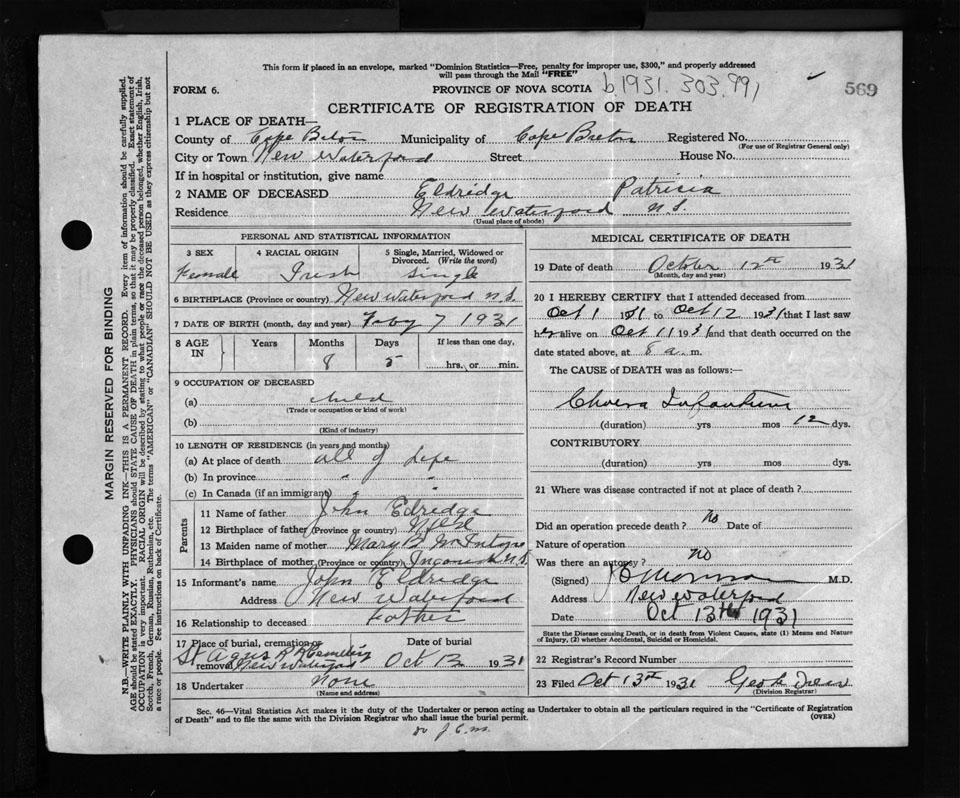 This form if placed in an envelope, marked "Dominion Statistics—Free, penalty for improper use, $300," and properly addressed
will pass through the Mail "FREE"
FORM 6. PROVINCE OF NOVA SCOTIA b.1931.303.991 569
CERTIFICATE OF REGISTRATION OF DEATH
1 PLACE OF DEATH—
County of Cape Breton Municipality of Cape Breton Registered No.
(For use of Registrar General only)
City or Town New Waterford Street House No.
If in hospital or institution, give name
2 NAME OF DECEASED Eldridge Patricia
Residence New Waterford N.S.
(Usual place of abode)
PERSONAL AND STATISTICAL INFORMATION
3 SEX 4 RACIAL ORIGIN 5 Single, Married, Widowed or
Divorced. (Write the word)
Female Irish Single
6 BIRTHPLACE (Province or country) New Waterford N.S.
7 DATE OF BIRTH (month, day and year) Feby 7 1931
8 AGE IN Years Months Days If less than one day,
8 5 hrs. or min.
9 OCCUPATION OF DECEASED
(a) child
(Trade or occupation or kind of work)
(b)
(Kind of industry)
10 LENGTH OF RESIDENCE (in years and months)
(a) At place of death all of life
(b) In province "
(c) In Canada (if an immigrant) "
Parents
11 Name of father John Eldridge
12 Birthplace of father (Province or country) Nfld
13 Maiden name of mother Mary B McIntyre
14 Birthplace of mother (Province or country) Ingonish N.S.
15 Informant's name John Eldridge
Address New Waterford
16 Relationship to deceased Father
17 Place of burial, cremation or removal Date of burial
St Agnes R.C. Cemetery
New Waterford Oct 13 1931
18 Undertaker None
(Name and address)
MEDICAL CERTIFICATE OF DEATH
19 Date of death October 12th 1931
(Month, day and year)
20 I HEREBY CERTIFY that I attended deceased from
Oct 1 1931 to Oct 12 1931 that I last saw
her alive on Oct 11 1931 and that death occurred on the
date stated above, at 8 a. m.
The CAUSE of DEATH was as follows:—
Cholera Infantum
(duration) yrs mos 12 dys.
CONTRIBUTORY
(duration) yrs mos dys.
21 Where was disease contracted if not at place of death?
Did an operation precede death? No Date of
Nature of operation
Was there an autopsy? no
(Signed) M.D.
Address New Waterford
Date Oct 13th 1931
State the Disease causing Death, or in death from Violent Causes, state (1) Means and Nature
of Injury, (2) whether Accidental, Suicidal or Homicidal.
22 Registrar's Record Number
23 Filed Oct 13th 1931 Geo
(Division Registrar)
Sec. 46—Vital Statistics Act makes it the duty of the Undertaker or person acting as Undertaker to obtain all the particulars required in the "Certificate of Registration
of Death" and to file the same with the Division Registrar who shall issue the burial permit. (OVER)
MARGIN RESERVED FOR BINDING
N.B.—WRITE PLAINLY WITH UNFADING INK—THIS IS A PERMANENT RECORD. Every item of information should be carefully supplied.
AGE should be stated EXACTLY. PHYSICIANS should STATE CAUSE OF DEATH in plain terms, so that it may be properly classified. Exact statement of
OCCUPATION is very important. RACIAL ORIGIN will be described by stating to what people or race the deceased person belonged, whether English, Irish,
Scotch, French, German, Russian, Ruthenian, etc. The terms "AMERICAN" or "CANADIAN" SHOULD NOT BE USED as they express citizenship but not
a race or people. See instructions on back of Certificate.